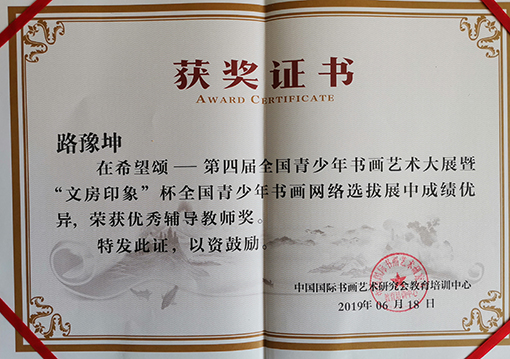 获奖证书
AWARD CERTIFICATE
路豫坤
在希望颂——第四届全国青少年书画艺术大展暨
“文房印象”杯全国青少年书画网络选拔展中成绩优
异，荣获优秀辅导教师奖。
特发此证，以资鼓励。
中国国际书画艺术研究会教育培训中心
2019年06月18日